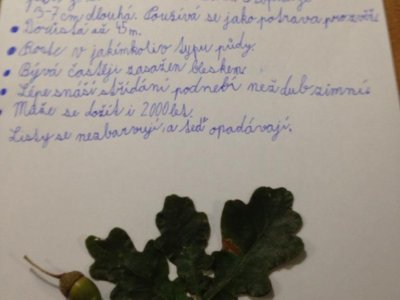 3-7 cm dlouhá. Používá se jako potrava pro zvěř.
• Dorůstá až 45m.
• Roste v jakímkoliv typu půdy.
• Bývá častěji zasažen bleskem.
• Lépe snáší střídání podnebí než dub zimní.
• Může se dožít i 2000 let.
Listy se nezbarvují, a teď opadávají.